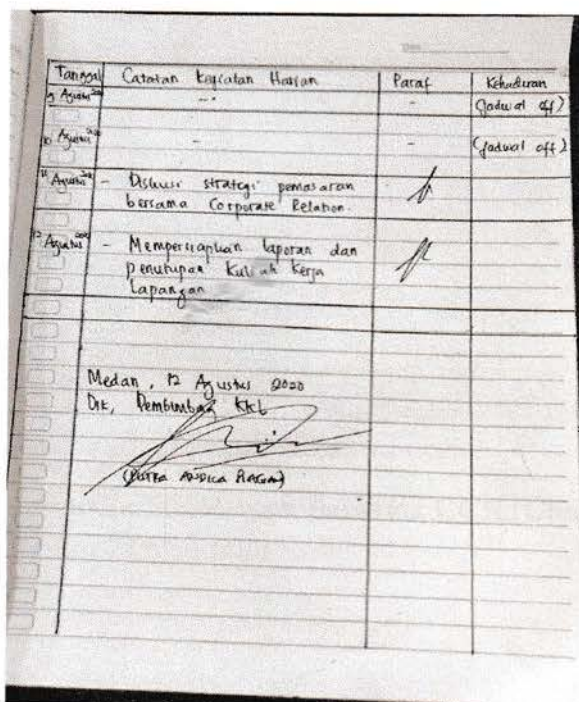 Tanggal Catatan Kegiatan Harian Paraf Kehadiran
9 Agustus 2020 - - (Jadwal off)
10 Agustus 2020 - - (Jadwal off)
11 Agustus 2020 - Diskusi strategi pemasaran
bersama Corporate Relation.
12 Agustus 2020 - Mempersiapkan laporan dan
penutupan Kuliah Kerja
Lapangan
Medan, 12 Agustus 2020
Pembimbing KKL
(PUTRA ANDICA